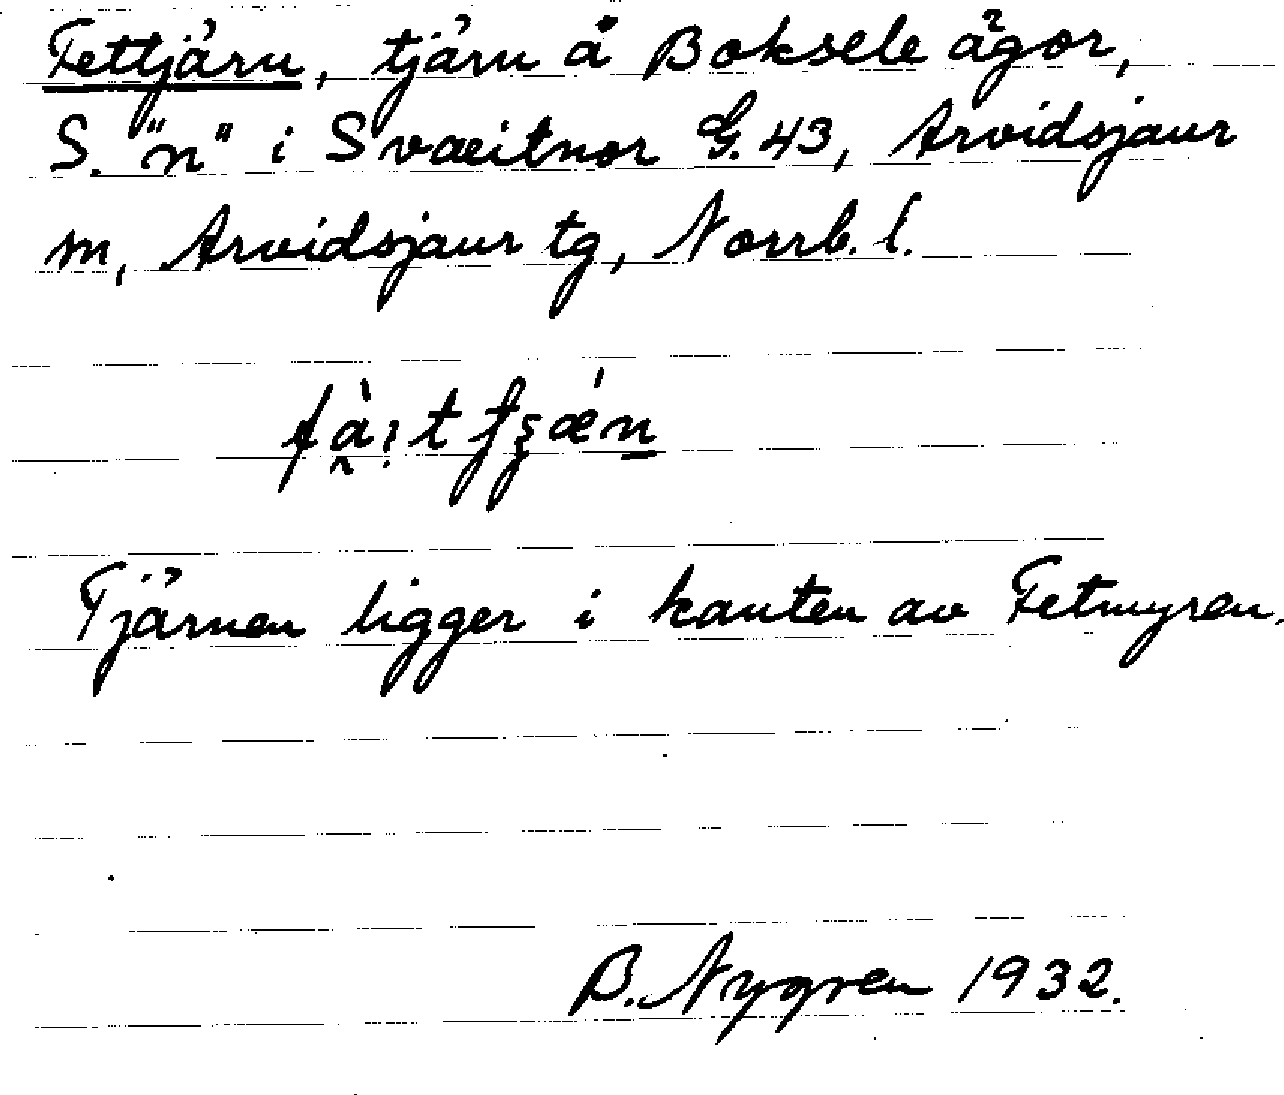 Fettjärn, tjärn å Boksele ägor,
S. "n" i Svaeitnor G. 43, Arvidsjaur
m, Arvidsjaur tg, Norrb. l.
Tjärnen ligger i kanten av Fetmyren.
B. Nygren 1932.